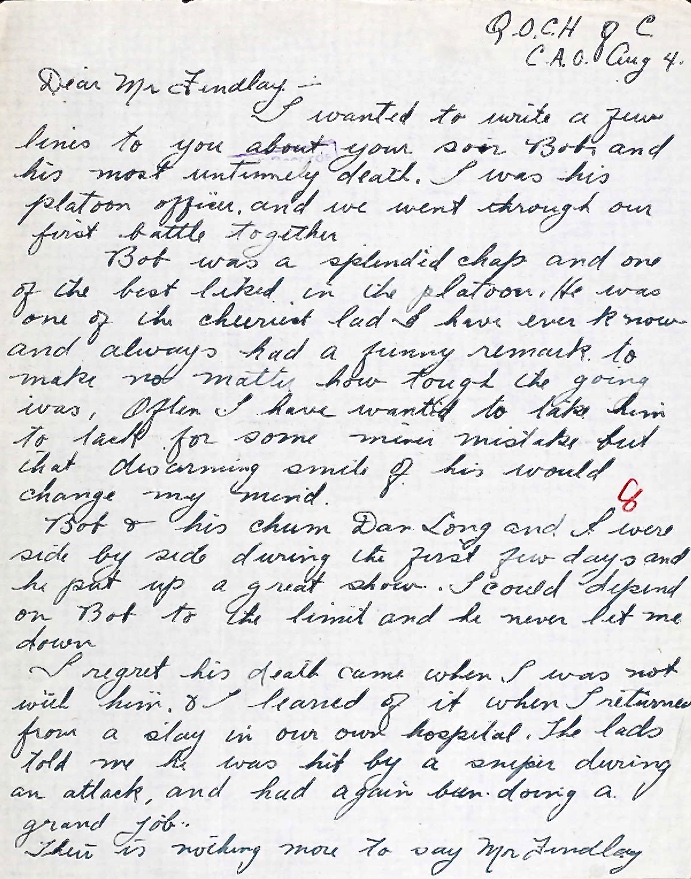 Q.O.C.H of C.
C.A.O. Aug 4.
Dear Mr Findlay —
I wanted to write a few
lines to you about your son Bob, and
his most untimely death. I was his
platoon officer, and we went through our
first battle together
Bob was a splendid chap and one
of the best liked in the platoon. He was
one of the cheeriest lad I have ever know
and always had a funny remark to
make no matter how tough the going
was. Often I have wanted to take him
to task for some minor mistake but
that disarming smile of his would
change my mind.
8
Bob & his chum Dan Long and I were
side by side during the first few days and
he put up a great show. I could depend
on Bob to the limit and he never let me
down
I regret his death came when I was not
with him, & I learned of it when I returned
from a stay in our own hospital. The lads
told me he was hit by a sniper during
an attack, and had again been doing a
grand job.
There is nothing more to say Mr Findlay